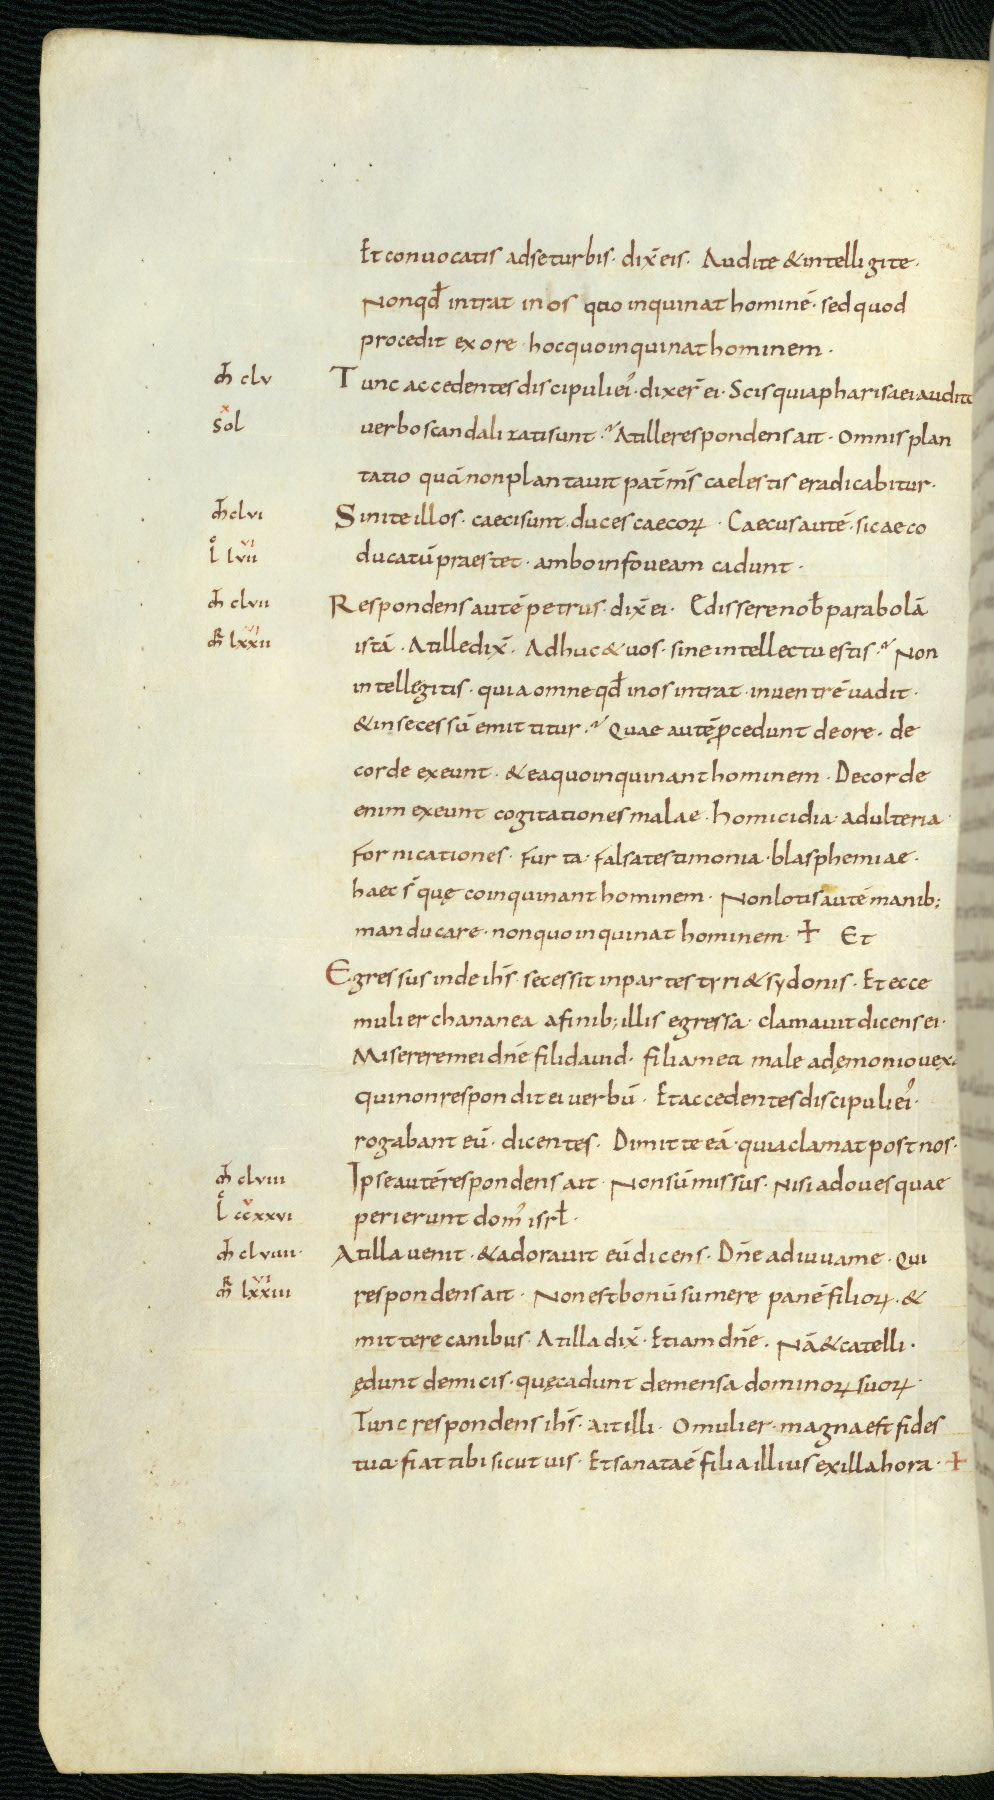 Et conuocatis ad se turbis · dix̄ eis · Audite & intelligite ·
Non qđ intrat in os quoinquinat hominē · sed quod
procedit ex ore · hoc quoinquinat hominem ·
m̄ clv Tunc accedentes discipuli ei᾽ · dixer̄ ei · Scis quia pharisaei audito
sol x uerbo scandalizati sunt · At ille respondens ait · Omnis plan
tatio quā non plantauit pat̄ m̄s caelestis eradicabitur ·
m̄ clvi Sinite illos · caeci sunt duces caecoꝝ · Caecus autē · si caeco
l lvii vi ducatū praestet · ambo in foueam cadunt ·
m̄ clvii Respondens autē petrus · dix̄ ei · Edissere nob̄ parabolā
m̄r lxxii vi istā · At ille dix̄ · Adhuc & uos · sine intellectu estis · Non
intellegitis · quia omne qđ in os intrat · in uentrē uadit ·
& in secessū emittitur · Quae autē ꝓcedunt de ore · de
corde exeunt · & ea quoinquinant hominem · De corde
enim exeunt cogitationes malae · homicidia · adulteria ·
fornicationes · furta · falsa testimonia · blasphemiae ·
haec s̄ quę coinquinant hominem · Non lotis autē manib;
manducare · non quoinquinat hominem · + Et
Egressus inde ih̄s · secessit in partes tyri & sydonis · Et ecce
mulier chananea a finib; illis egressa · clamauit dicens ei ·
Miserere mei dn̄e fili dauid · filia mea male a dęmonio uex.
qui non respondit ei uerbū · Et accedentes discipuli ei᾽ ·
rogabant eū · dicentes · Dimitte eā · quia clamat post nos ·
m̄ clviii Ipse autē respondens ait · Non sū missus · nisi ad oues quae
l ccxxvi v perierunt dom᾽ isrł ·
m̄ clviiii · At illa uenit · & adorauit eū dicens · Dn̄e adiuua me · Qui
m̄r lxxiii vi respondens ait · Non est bonū sumere panē filioꝝ · &
mittere canibus · At illa dix̄ · Etiam dn̄e · Nā & catelli ·
ędunt de micis · quę cadunt de mensa dominoꝝ suoꝝ ·
Tunc respondens ih̄s · ait illi · O mulier · magna est fides
tua · fiat tibi sicut uis · Et sanata ē filia illius ex illa hora · +